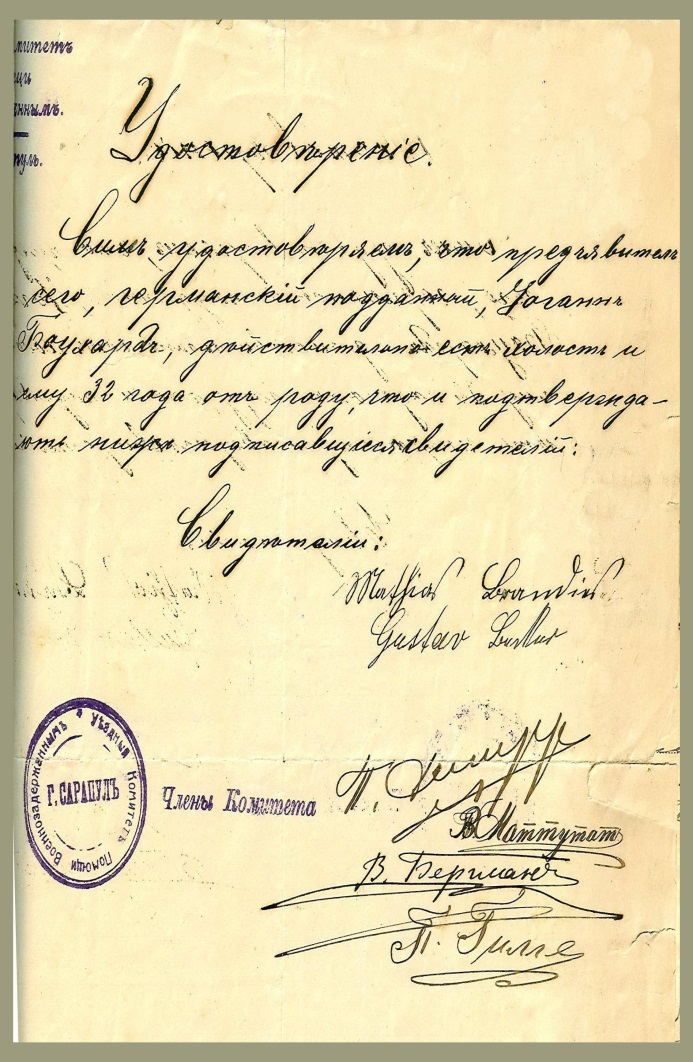 митетъ
щи
еннымъ.
пулъ.
Удостовѣреніе.
Симъ удостовѣряемъ, что предъявитель
сего, германскій подданный, Іоганнъ
дѣйствительно есть холостъ и
ему 32 года отъ роду, что и подтвержда-
ютъ ниже подписавшіеся свидетеліи:
Свидѣтеліи:
Mathias Brandies
Gustav
Уѣздный Комитетъ Помощи Военнозадержаннымъ
Г. САРАПУЛЪ
Члены Комитета
П.
В. Маттутат
В. Бергманъ
П. Гилле